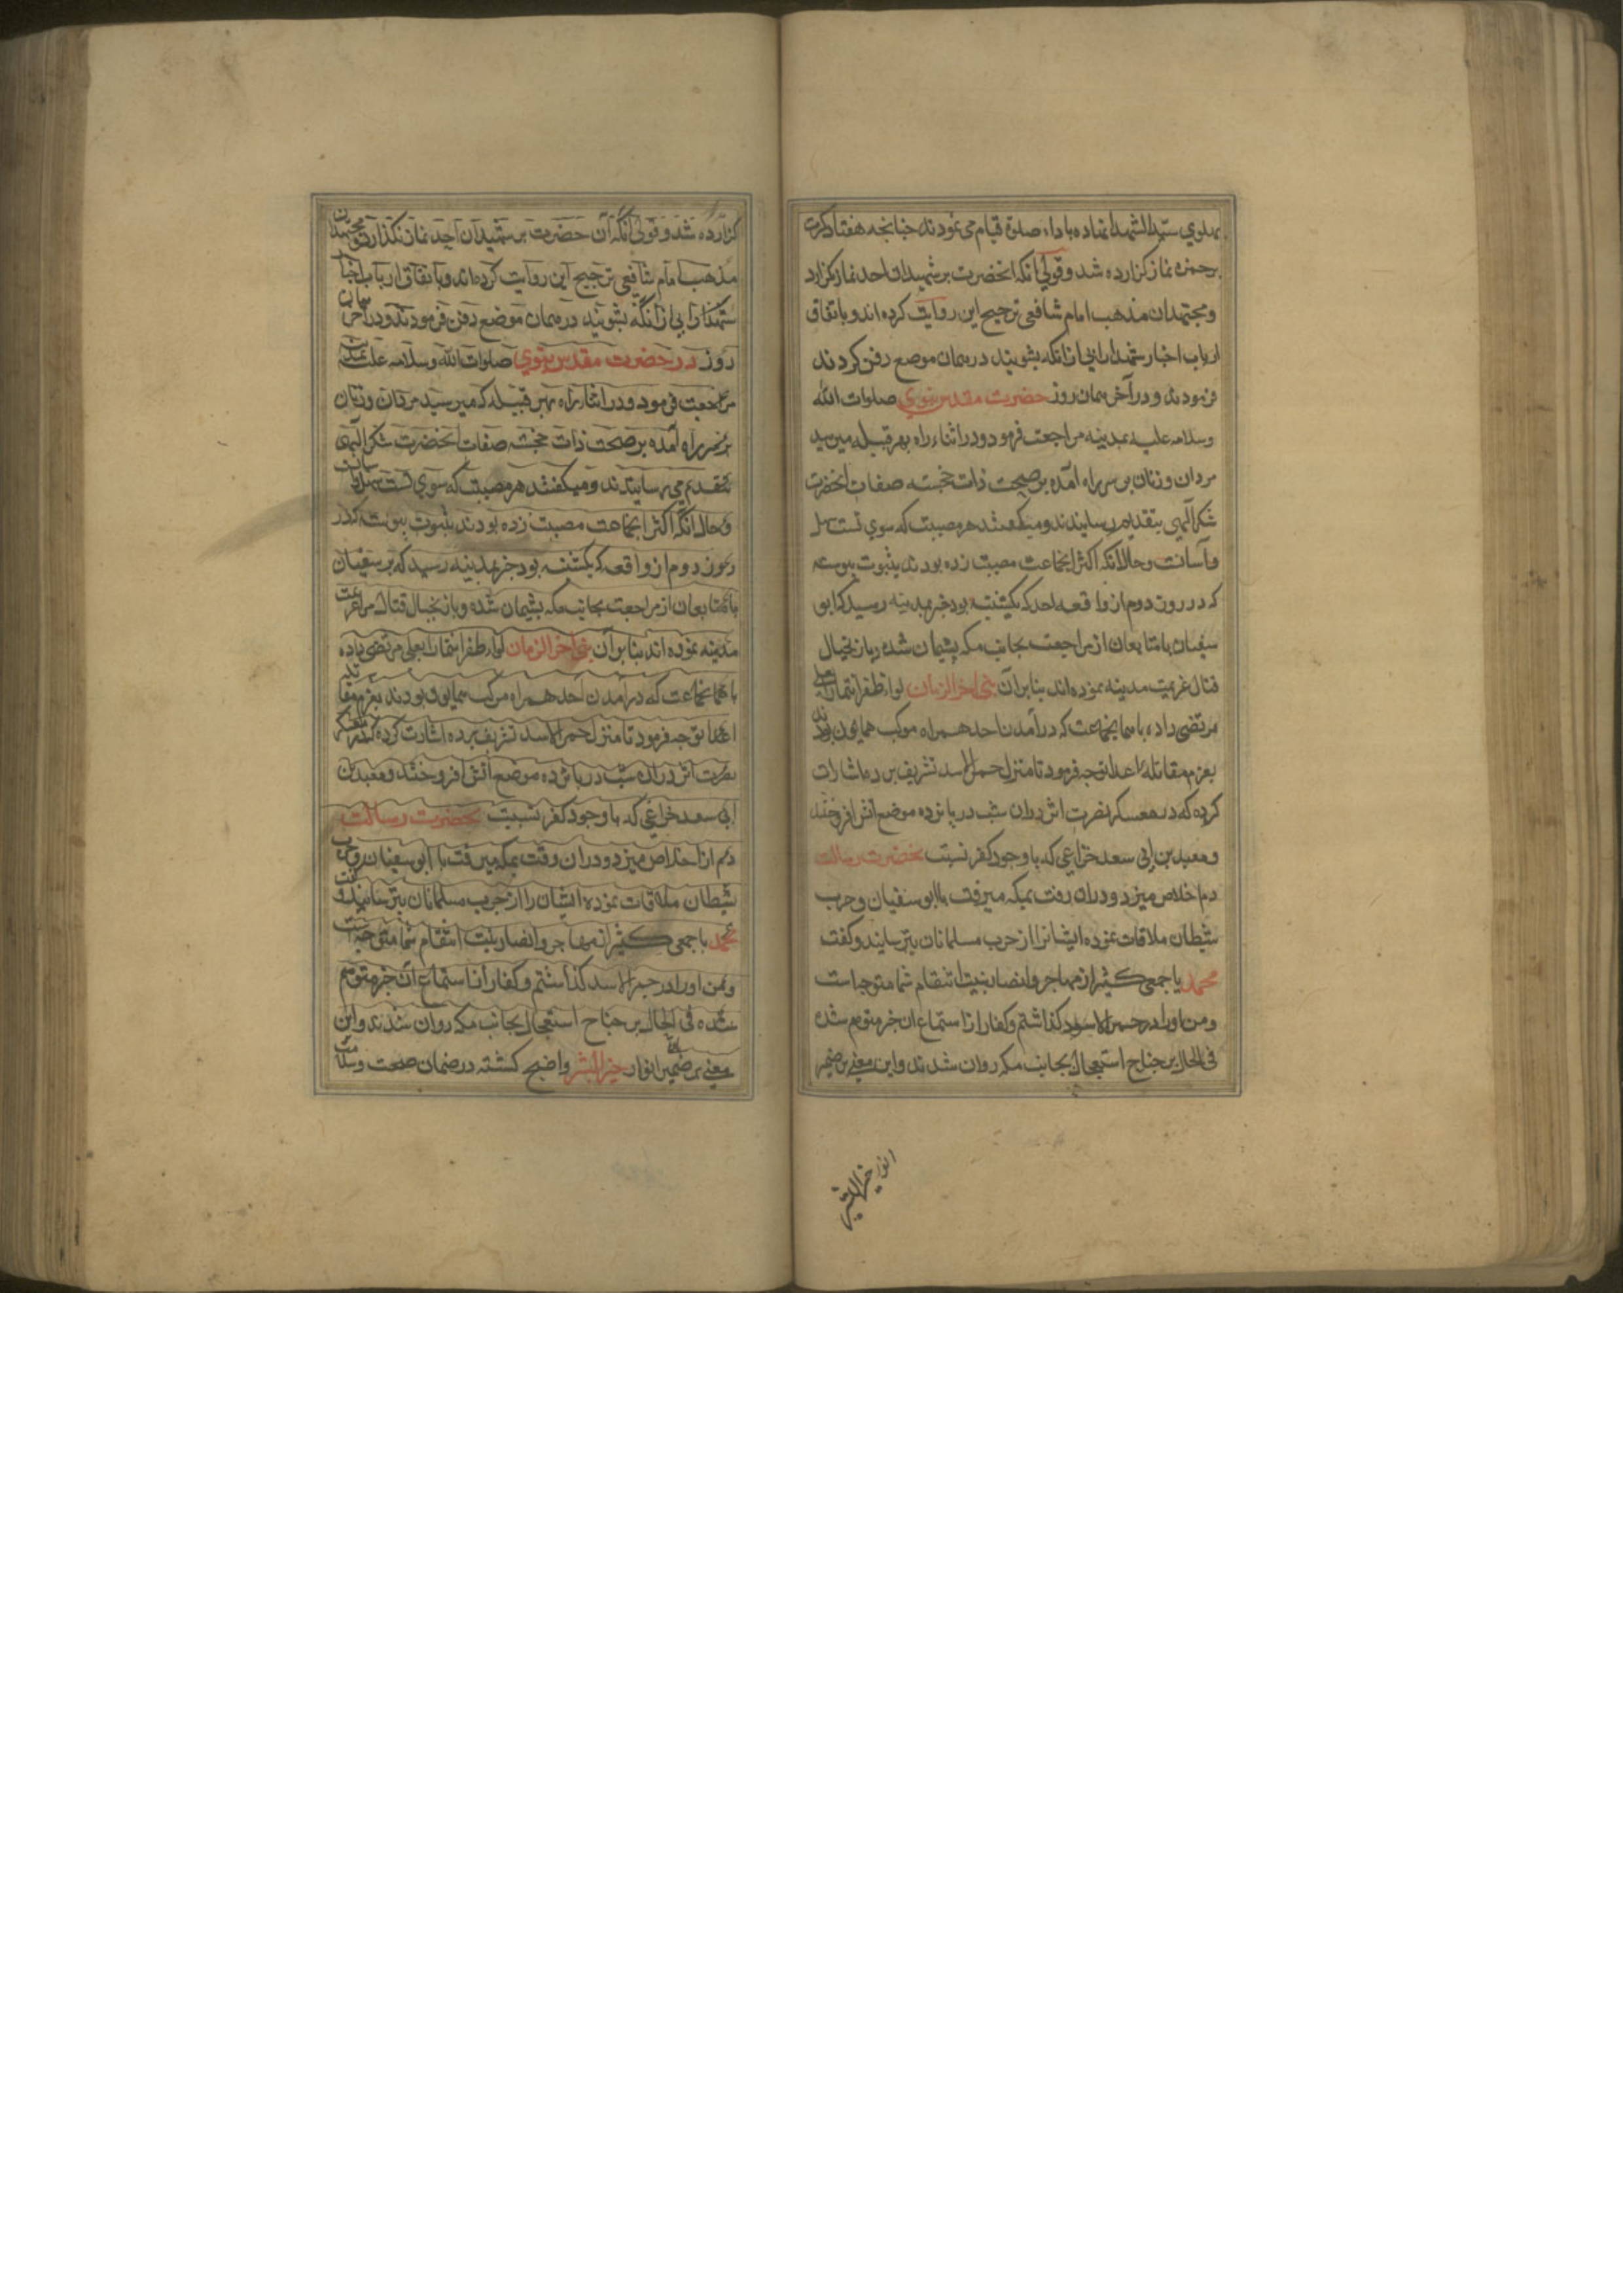 بپهلوي سيد الشهدا نهاده باداء صلوة قيام مى نمودند چنانچه هفتاد كرت
بر حمزه نماز كزارده شد و قولي آنكه آنحضرت بر شهيدان احد نماز نكزارد
و مجتهدان مذهب امام شافعى ترجيح اين روايت كرده اند و باتفاق
ارباب اخبار شهدا را بى از آنكه بشويند در همان موضع دفن كردند
فرمودند و در آخر همان روز حضرت مقدس نبوي صلوات الله
وسلامه عليه بمدينه مراجعت فرمود و در اثناء راه بهر قبيله ميرسيد
مردان و زنان بر سر راه آمده بر صحت ذات خجسته صفات آنحضرت
شكر الهى بتقديم رسايندند و ميكفتند هر مصيبت كه سوي تست سهل
و آسانست و حالانكه اكثر آنجماعت مصيبت زده بودند بثبوت پيوسته
كه در روز دوم از واقعه احد كه يكشنبه بود خبر بمدينه رسيد كه ابو
سفيان با متابعان از مراجعت بجانب مكه پشيمان شده و باز بخيال
قتال عزيمت مدينه نموده اند بنابر آن نبى آخر الزمان لواء ظفر انتما را بعلى
مرتضى داده با همانجماعت كه در آمدن احد همراه موكب همايون بودند
بعزم مقاتله اعدا توجه فرمود تا منزل حمرا الاسد تشريف برده اشارات
كرده كه در معسكر نصرت اثر در ان شب در پانزده موضع آتش افروختند
و معبد بن ابى سعد خزاعي كه با وجود كفر نسبت بحضرت رسالت
دم اخلاص ميزد و در ان وقت بمكه ميرفت با ابو سفيان و حزب
شيطان ملاقات نموده ايشانرا از حرب مسلمانان بترسانيد و كفت
محمد با جمعى كثير از مهاجر و انصار بنيت انتقام شما متوجه است
و من او را در حمرا الاسود كذاشتم و كفار از استماع ان خبر متوهم شده
فى الحال بر جناح استعجال بجانب مكه روان شدند و اين معنى بر ضمير
انور خير البشر
كزارده شد و قولى آنكه آن حضرت بر شهيدان احد نماز نكذارد و مجتهدان
مذهب امام شافعى ترجيح اين روايت كرده اند و باتفاق ارباب اخبار
شهدا را بى از آنكه بشويند در همان موضع دفن فرمودند و در آخر همان
روز در حضرت مقدس نبوي صلوات الله وسلامه عليه بمدينه
مراجعت فرمود و در اثناء راه بهر قبيله كه ميرسيد مردان و زنان
بر سر راه آمده بر صحت ذات خجسته صفات آنحضرت شكر الهى
بتقديم مى رسانيدند و ميكفتند هر مصيبت كه سوي تست سهل و آسانست
و حال آنكه اكثر آنجماعت مصيبت زده بودند بثبوت پيوست كه در
روز دوم از واقعه كه يكشنبه بود خبر بمدينه رسيد كه بو سفيان
با متابعان از مراجعت بجانب مكه پشيمان شده و باز بخيال قتال مراجعت
مدينه نموده اند بنابر آن نبى آخر الزمان لواء ظفر انتما را بعلى مرتضى داده
با همانجماعت كه در آمدن احد همراه موكب همايون بودند بعزم مقاتله
اعدا توجه فرمود تا منزل حمرا الاسد تشريف برده اشارت كرده كه در معسكر
نصرت اثر در ان شب در پانزده موضع آتش افروختند و معبد بن
ابى سعد خزاعي كه با وجود كفر نسبت بحضرت رسالت
دم از اخلاص ميزد و در ان وقت بمكه ميرفت با ابو سفيان و حزب
شيطان ملاقات نموده ايشان را از حرب مسلمانان بترسانيد و كفت
محمد با جمعى كثير از مهاجر و انصار بنيت انتقام شما متوجه است
و من او را در حمرا الاسد كذاشتم و كفار از استماع آن خبر متوهم
شده فى الحال بر جناح استعجال بجانب مكه روان شدند و اين
معنى بر ضمير انوار خير البشر واضح كشته در ضمان صحت و سلامت